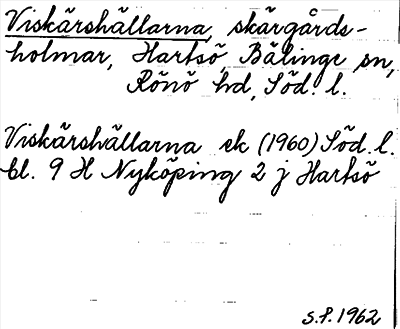 Viskärshällarna, skärgårds-
holmar, Hartsö, Bälinge sn,
Rönö hd, Söd. l.
Viskärshällarna ek (1960) Söd. l.
bl. 9 H Nyköping 2 j Hartsö
S.P. 1962